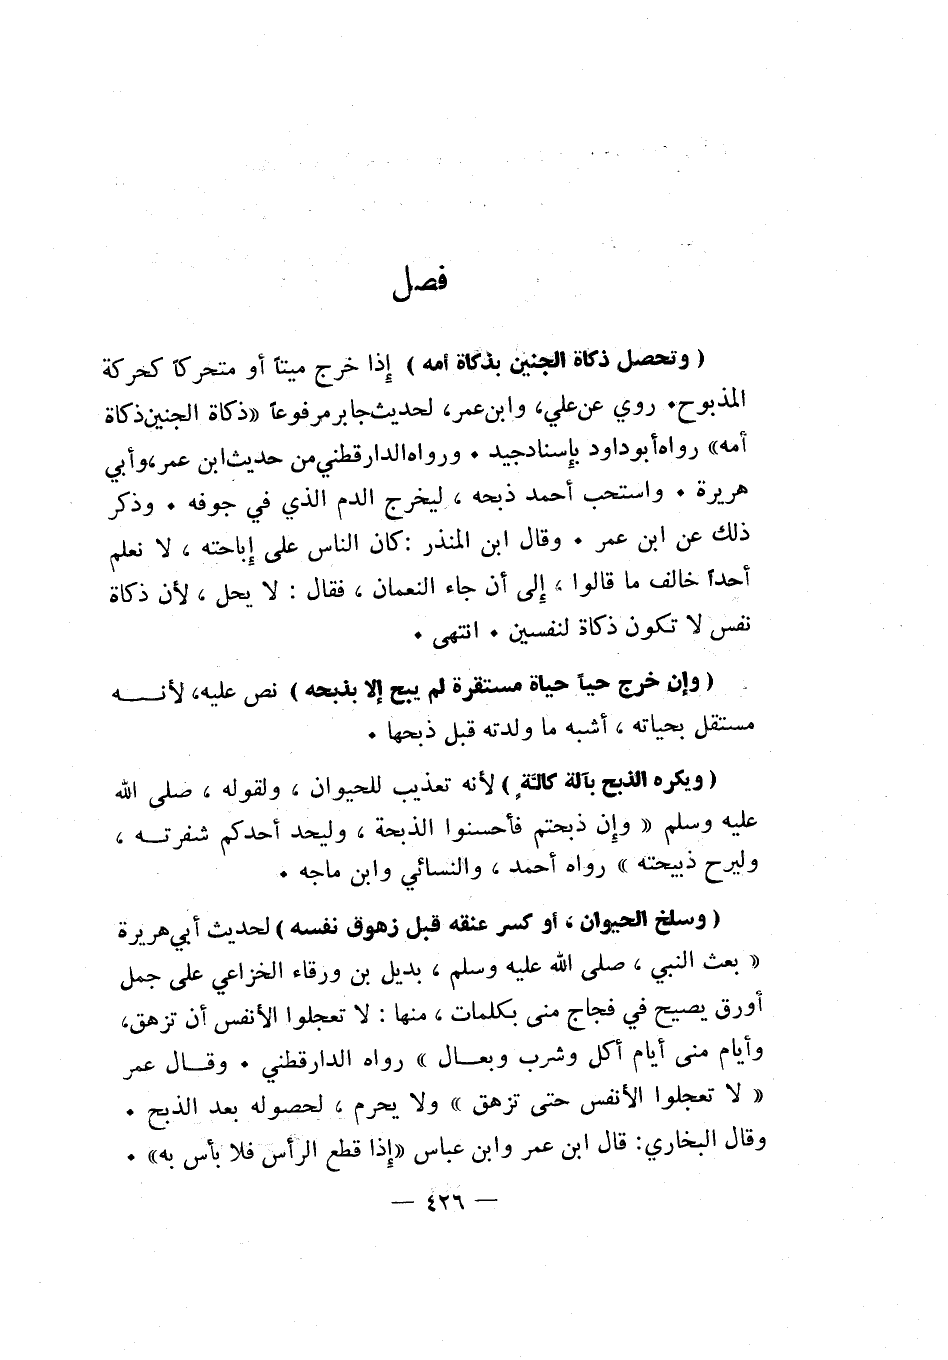 فصل
( وتحصل ذكاة الجنين بذكاة أمه ) إذا خرج ميتاً أو متحركاً كحركة
المذبوح. روي عن علي، وابن عمر، لحديث جابر مرفوعاً «ذكاة الجنين ذكاة
أمه» رواه أبو داود بإسناد جيد . ورواه الدارقطني من حديث ابن عمر، وأبي
هريرة . واستحب أحمد ذبحه ، ليخرج الدم الذي في جوفه . وذكر
ذلك عن ابن عمر . وقال ابن المنذر : كان الناس على إباحته ، لا نعلم
أحداً خالف ما قالوا ، إلى أن جاء النعمان ، فقال : لا يحل ، لأن ذكاة
نفس لا تكون ذكاة لنفسين . انتهى .
( وإن خرج حياً حياة مستقرة لم يبح إلا بذبحه ) نص عليه، لأنـــه
مستقل بحياته ، أشبه ما ولدته قبل ذبحها .
( ويكره الذبح بآلة كالّةٍ ) لأنه تعذيب للحيوان ، ولقوله ، صلى الله
عليه وسلم « وإن ذبحتم فأحسنوا الذبحة ، وليحد أحدكم شفرتــه ،
وليرح ذبيحته » رواه أحمد ، والنسائي وابن ماجه .
( وسلخ الحيوان ، أو كسر عنقه قبل زهوق نفسه ) لحديث أبي هريرة
« بعث النبي ، صلى الله عليه وسلم ، بديل بن ورقاء الخزاعي على جمل
أورق يصيح في فجاج منى بكلمات ، منها : لا تعجلوا الأنفس أن تزهق،
وأيام منى أيام أكل وشرب وبعــال » رواه الدارقطني . وقــال عمر
« لا تعجلوا الأنفس حتى تزهق » ولا يحرم ، لحصوله بعد الذبح .
وقال البخاري: قال ابن عمر وابن عباس «إذا قطع الرأس فلا بأس به» .
— ٤٢٦ —